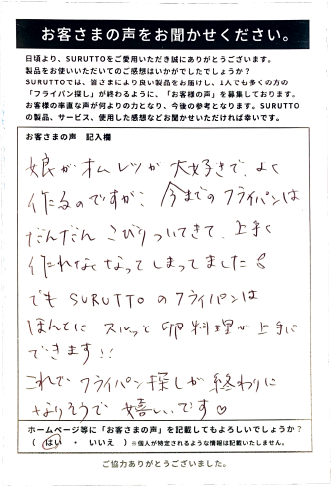 お客さまの声をお聞かせください。
日頃より、SURUTTOをご愛用いただき誠にありがとうございます。
製品をお使いいただいてのご感想はいかがでしたでしょうか？
SURUTTOでは、皆さまにより良い製品をお届けし、1人でも多くの方の
「フライパン探し」が終わるように、「お客様の声」を募集しております。
お客様の率直な声が何よりの力となり、今後の参考となります。SURUTTO
の製品、サービス、使用した感想などお聞かせいただければ幸いです。
お客さまの声　記入欄
娘がオムレツが大好きで、よく
作るのですが、今までのフライパンは
だんだん こびりついてきて、上手く
作れなくなってしまってました
でも SURUTTO のフライパンは
ほんとに スルッと 卵料理が上手に
できます!!
これで フライパン探しが終わりに
なりそうで 嬉しいです♡
ホームページ等に「お客さまの声」を記載してもよろしいでしょうか？
（ はい ・ いいえ ）※個人が特定されるような情報は記載いたしません。
ご協力ありがとうございました。